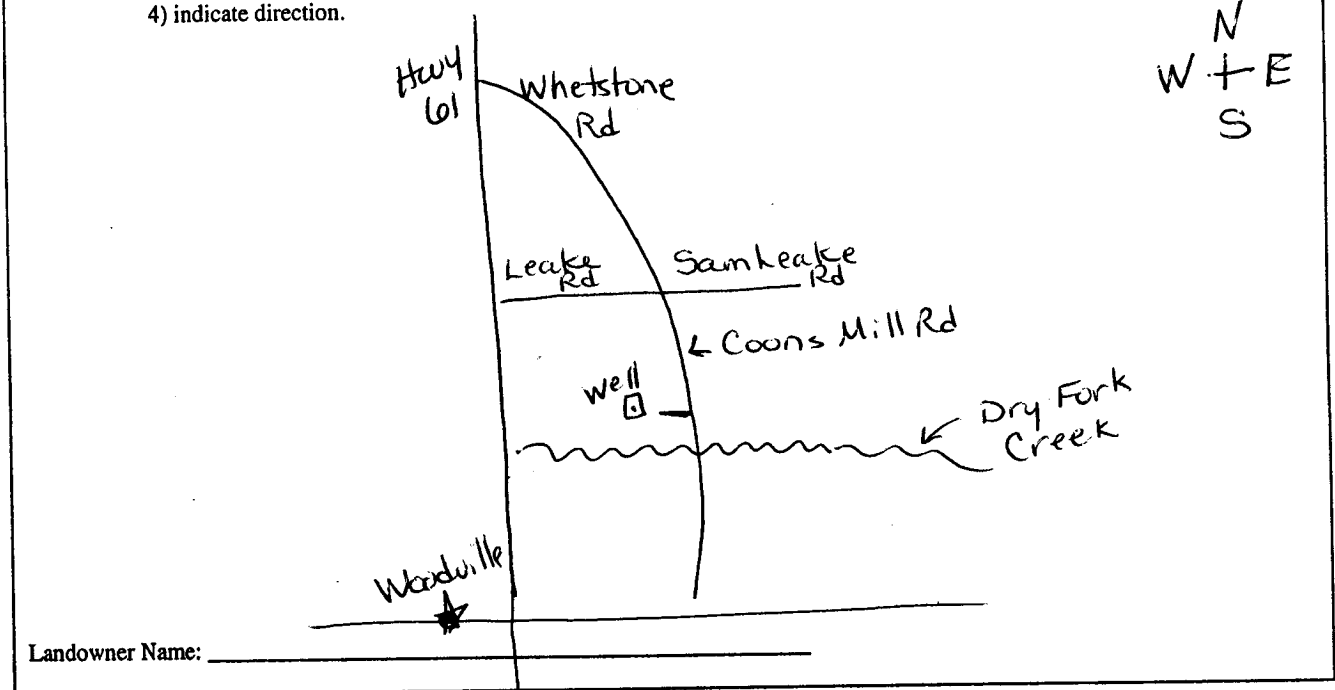 4) indicate direction.
N
W + E
S
Hwy
61
Whetstone
Rd
Leake
Rd
Sam Leake
Rd
Coons Mill Rd
well
Dry Fork
Creek
Woodville
Landowner Name: